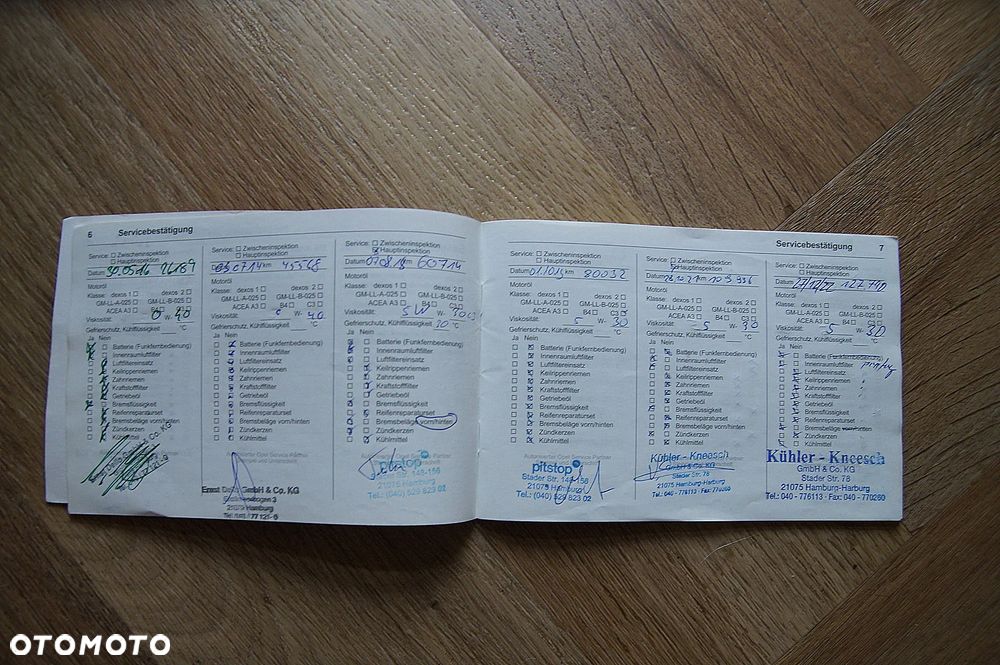 6 Servicebestätigung
Service: Zwischeninspektion
Hauptinspektion
Datum 30.05.16
Motoröl
Klasse: dexos 1 dexos 2
GM-LL-A-025 GM-LL-B-025
ACEA A3 B4 C3
Viskosität: 0 W- 40
Gefrierschutz, Kühlflüssigkeit °C
Ja Nein
Batterie (Funkfernbedienung)
Innenraumluftfilter
Luftfiltereinsatz
Keilrippenriemen
Zahnriemen
Kraftstofffilter
Getriebeöl
Bremsflüssigkeit
Reifenreparaturset
Bremsbeläge vorn/hinten
Zündkerzen
Kühlmittel
Service: Zwischeninspektion
Hauptinspektion
km 45568
Motoröl
Klasse: dexos 1 dexos 2
GM-LL-A-025 GM-LL-B-025
ACEA A3 B4 C3
Viskosität: W- 40
Gefrierschutz, Kühlflüssigkeit °C
Ja Nein
Batterie (Funkfernbedienung)
Innenraumluftfilter
Luftfiltereinsatz
Keilrippenriemen
Zahnriemen
Kraftstofffilter
Getriebeöl
Bremsflüssigkeit
Reifenreparaturset
Bremsbeläge vorn/hinten
Zündkerzen
Kühlmittel
GmbH & Co. KG
21079 Hamburg
Service: Zwischeninspektion
Hauptinspektion
Datum km 60714
Motoröl
Klasse: dexos 1 dexos 2
GM-LL-A-025 GM-LL-B-025
ACEA A3 B4 C3
Viskosität: 5 W- 30
Gefrierschutz, Kühlflüssigkeit °C
Ja Nein
Batterie (Funkfernbedienung)
Innenraumluftfilter
Luftfiltereinsatz
Keilrippenriemen
Zahnriemen
Kraftstofffilter
Getriebeöl
Bremsflüssigkeit
Reifenreparaturset
Bremsbeläge vorn/hinten
Zündkerzen
Kühlmittel
Autorisierter Opel Service Partner
pitstop
21075 Hamburg
Tel.: (040) 529 823 02
Servicebestätigung 7
Service: Zwischeninspektion
Hauptinspektion
Datum km 80032
Motoröl
Klasse: dexos 1 dexos 2
GM-LL-A-025 GM-LL-B-025
ACEA A3 B4 C3
Viskosität: 5 W- 30
Gefrierschutz, Kühlflüssigkeit °C
Ja Nein
Batterie (Funkfernbedienung)
Innenraumluftfilter
Luftfiltereinsatz
Keilrippenriemen
Zahnriemen
Kraftstofffilter
Getriebeöl
Bremsflüssigkeit
Reifenreparaturset
Bremsbeläge vorn/hinten
Zündkerzen
Kühlmittel
Autorisierter Opel Service Partner
pitstop
Stader Str. 148-158
21075 Hamburg
Tel.: (040) 529 823 02
Service: Zwischeninspektion
Hauptinspektion
Motoröl
Klasse: dexos 1 dexos 2
GM-LL-A-025 GM-LL-B-025
ACEA A3 B4 C3
Viskosität: 5 W- 30
Gefrierschutz, Kühlflüssigkeit °C
Ja Nein
Batterie (Funkfernbedienung)
Innenraumluftfilter
Luftfiltereinsatz
Keilrippenriemen
Zahnriemen
Kraftstofffilter
Getriebeöl
Bremsflüssigkeit
Reifenreparaturset
Bremsbeläge vorn/hinten
Zündkerzen
Kühlmittel
Kühler - Kneesch
GmbH & Co. KG
Stader Str. 78
21075 Hamburg-Harburg
Tel.: 040 - 776113 · Fax: 770260
Service: Zwischeninspektion
Hauptinspektion
Datum
Motoröl
Klasse: dexos 1 dexos 2
GM-LL-A-025 GM-LL-B-025
ACEA A3 B4 C3
Viskosität: 5 W- 30
Gefrierschutz, Kühlflüssigkeit °C
Ja Nein
Batterie (Funkfernbedienung)
Innenraumluftfilter
Luftfiltereinsatz
Keilrippenriemen
Zahnriemen
Kraftstofffilter
Getriebeöl
Bremsflüssigkeit
Reifenreparaturset
Bremsbeläge vorn/hinten
Zündkerzen
Kühlmittel
Kühler - Kneesch
GmbH & Co. KG
Stader Str. 78
21075 Hamburg-Harburg
Tel.: 040 - 776113 · Fax - 770260
OTOMOTO